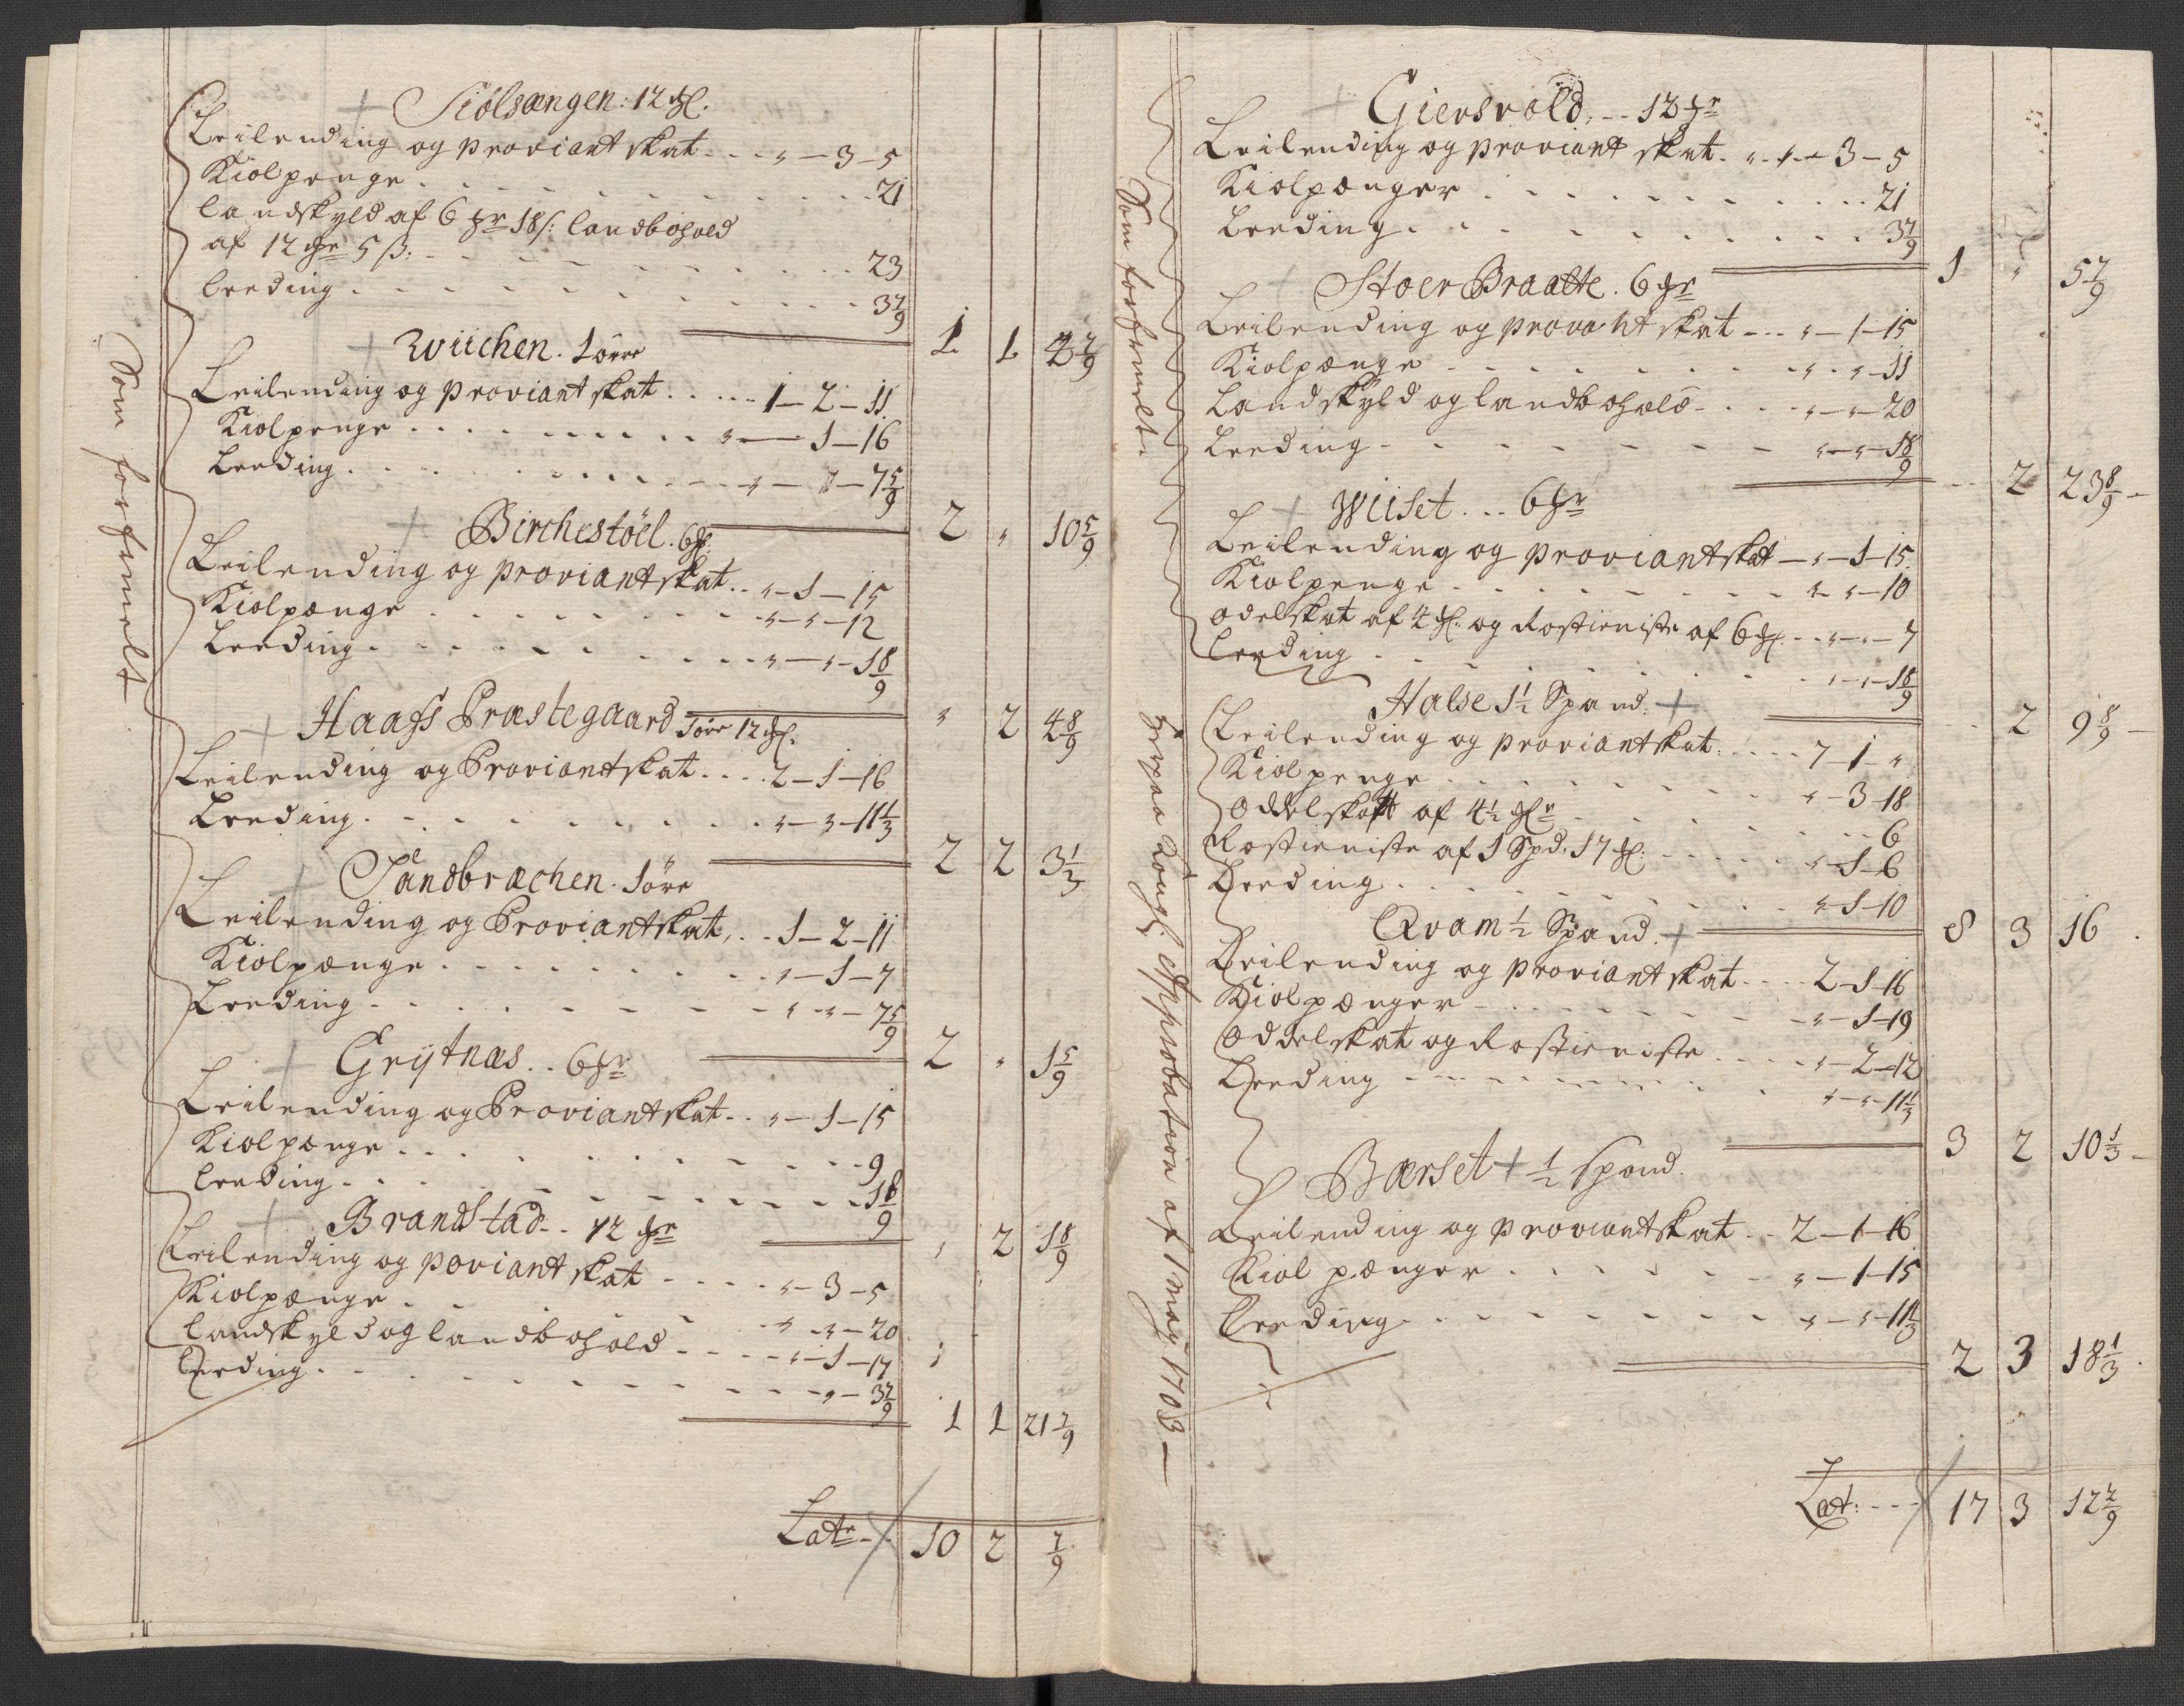 Siölsængen: 12 ℔.
Leilending og proviant skat - - - " - 3 - 5
Kiolpenge - - - 21
landskyld af 6 ℔r 18 ß: landbohold
af 12 ℔r 5 ß: - - - 23
Leeding - - - 3 7/9
1 1 4 7/9
Zwiichen. 1 öre
Leilending og proviant skat - - - 1 - 2 - 11
Kiolpenge - - - " - 1 - 16
Leeding - - - " - " - 7 5/9
2 " 10 5/9
Birchestöel. 6 ℔.
Leilending og proviant skat - - " - 1 - 15
Kiolpænge - - - " - " - 12
Leeding - - - " - " - 1 8/9
" 2 4 8/9
Haafs Præstegaard 1 öre 12 ℔.
Leilending og Proviant skat - - - 2 - 1 - 16
Leeding - - - " - " - 11 1/3
2 2 3 1/3
Sandbræchen. 1 öre
Leilending og Proviant skat - - - 1 - 2 - 11
Kiolpænge - - - " - 1 - 7
Leeding - - - " - " - 7 5/9
2 " 1 5/9
Grÿtnæs - - 6 ℔r
Leilending og Proviant skat - - " - 1 - 15
Kiolpænge - - - 9
Leeding - - - 1 8/9
" 2 1 8/9
Brandstad - - 12 ℔r
Leilending og poviant skat - - - " - 3 - 5
Kiolpænge - - - " - " - 20
Landskyld og landbohold - - - " - 1 - 17
Leeding - - - " - 3 7/9
1 1 21 7/9
Latr - - 10 2 7/9
Som forhen melt
Giersvold - - 12 ℔r
Leilending og proviant skat - " - 3 - 5
Kiolpænger - - - 21
Leeding - - - 3 7/9
1 " 5 7/9
Stoer Braatte. 6 ℔r
Leilending og proviant skat - - - " - 1 - 15
Kiolpænge - - - " - " - 11
Landskyld og landbohold - - - " - " - 20
Leeding - - - " - " - 1 8/9
- - 2 23 8/9 -
Wiiset - - 6 ℔r
Leilending og proviant skat - " - 1 - 15
Kiolpenge - - - " - " - 10
Odelskat af 4 ℔: og Rostieniste af 6 ℔. - - " - " - 7
Leeding - - - " - " - 1 8/9
- - 2 9 8/9 -
Halse 1 1/2 Spand.
Leilending og proviant skat - - - 7 - 1 - "
Kiolpenge - - - " - 3 - 18
Oddelskatt af 4 1/2 ℔r - - - 6
Rostieniste af 1 Spd. 17 ℔: - - - " - 1 - 6
Leeding - - - " - 1 - 10
8 3 16
Qvam 1/2 Spand.
Leilending og proviant skat - - - 2 - 1 - 16
Kiolpænger - - - " - 1 - 19
Oddelskat og Rostieniste - - - " - 2 - 12
Leeding - - - " - " - 11 1/3
3 2 10 1/3 -
Bærset 1/2 spand.
Leilending og proviant skat - - 2 - 1 - 16
Kiol pænger - - - " - 1 - 15
Leeding - - - " - " - 11 1/3
2 3 18 1/3
Lat: - - - 17 3 12 2/9
Som forhen melt.
Approbation af 1 may 1703 -